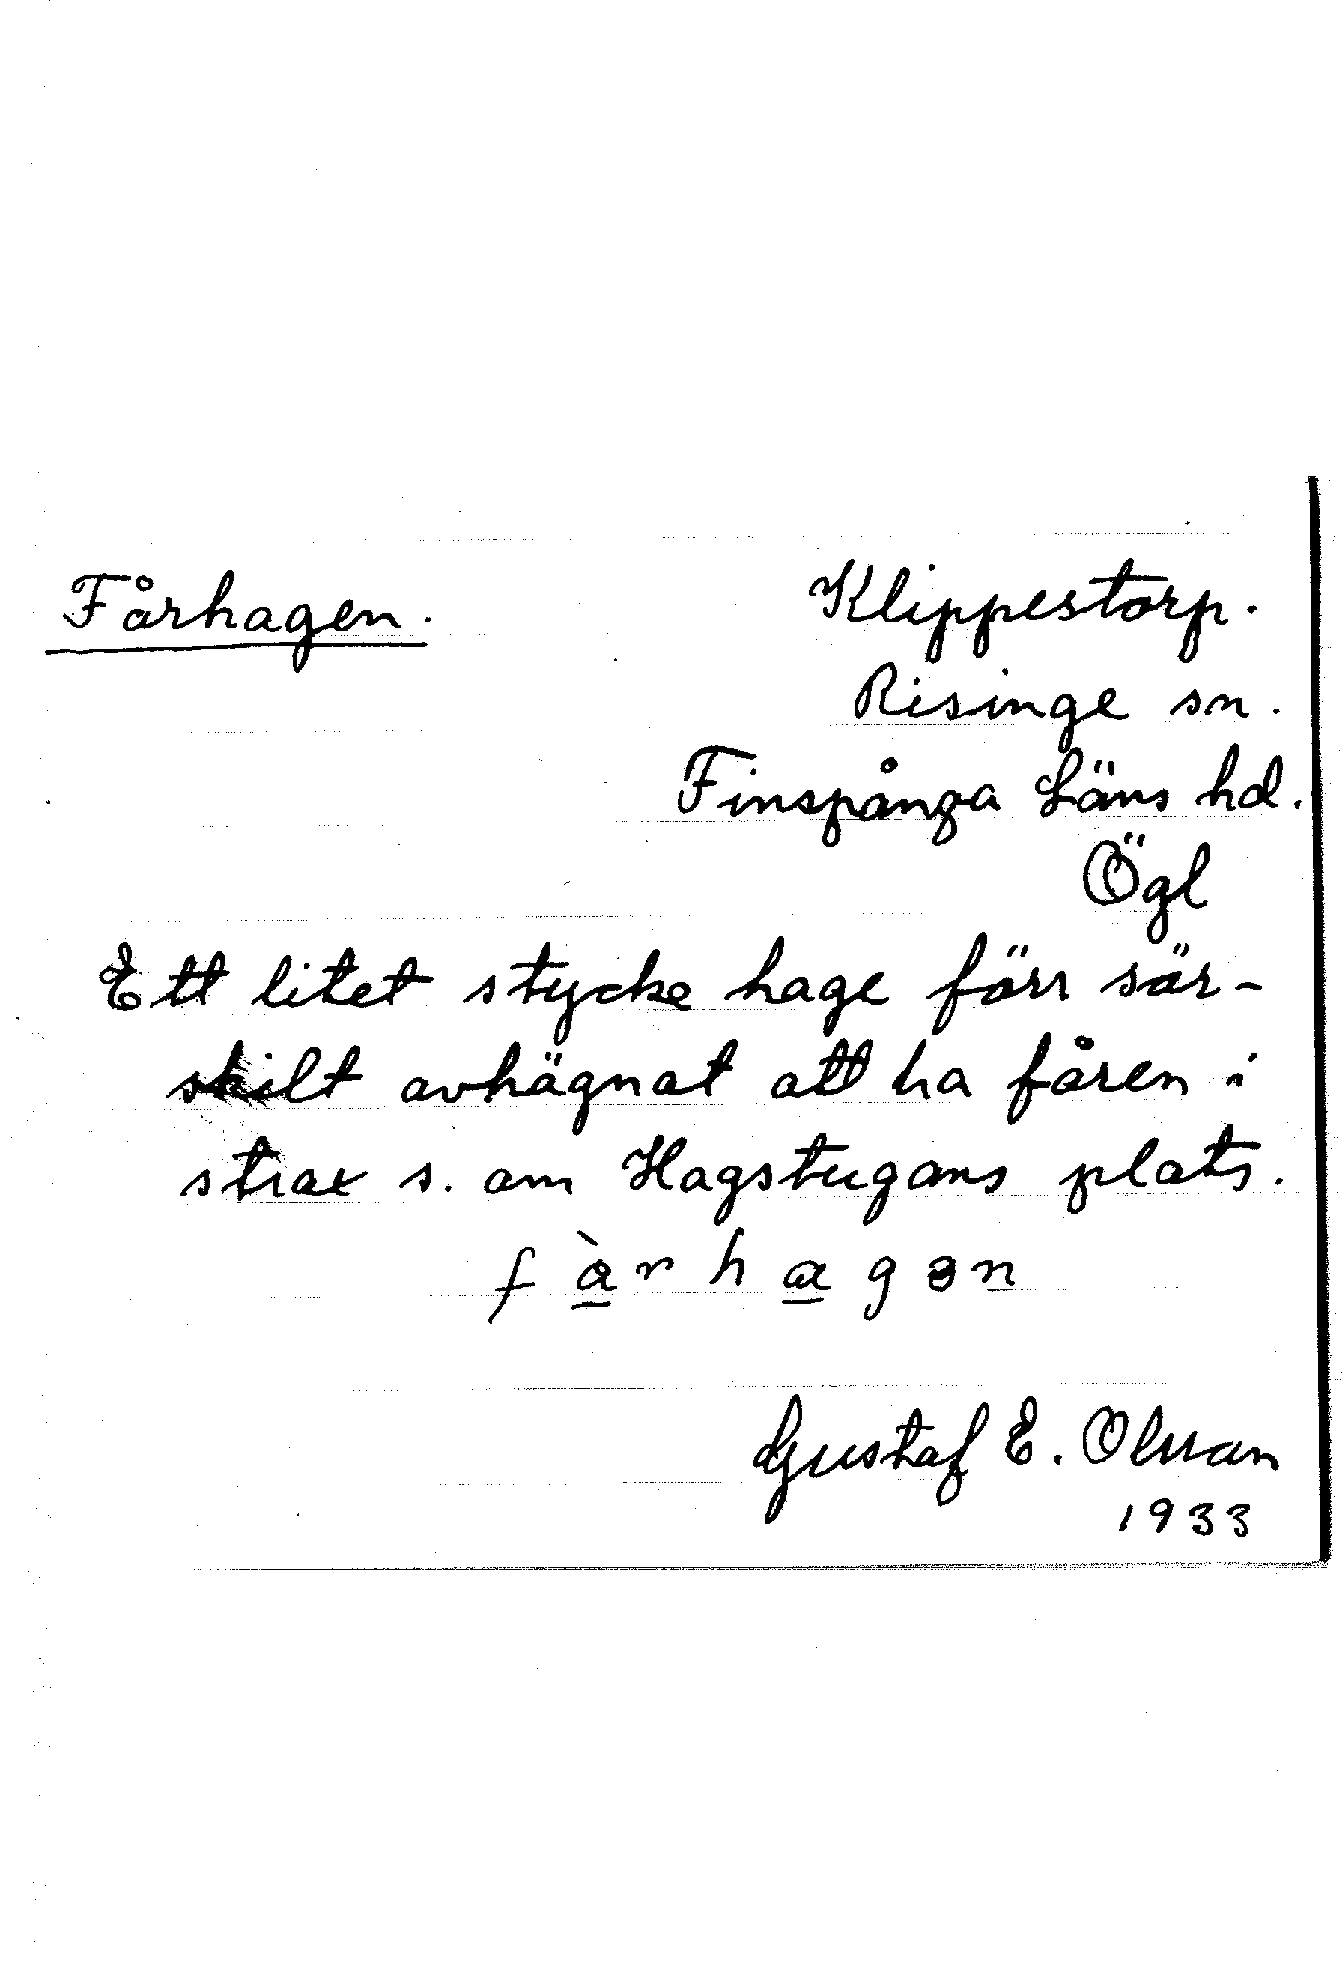 Fårhagen.
Klippestorp.
Risinge sn.
Finspånga Läns hd.
Ögl
Ett litet stycke hage förr sär-
skilt avhägnat att ha fåren i
strax s. om Hagstugans plats.
f å̀ r h a g ə n
Gustaf E. Olsson
1933